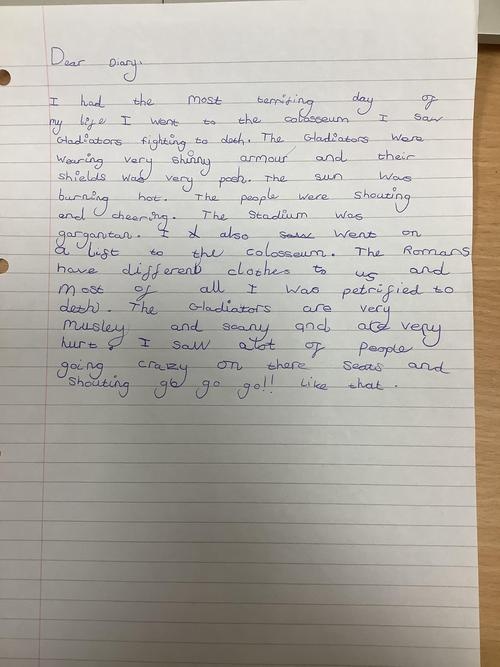 Dear Diary,
I had the most terrifing day of
my life I went to the colosseum I saw
Gladiators fighting to deth. The Gladiators were
wearing very shinny armour and their
shields was very posh. The sun was
burning hot. The people were shouting
and cheering. The Stadium was
gargantan. I also went on
a list to the colosseum. The Romans
have different clothes to us and
most of all I was petrified to
deth. The Gladiators are very
musley and scary and are very
hurt. I saw alot of people
going crazy on there seats and
shouting go go go!! Like that.